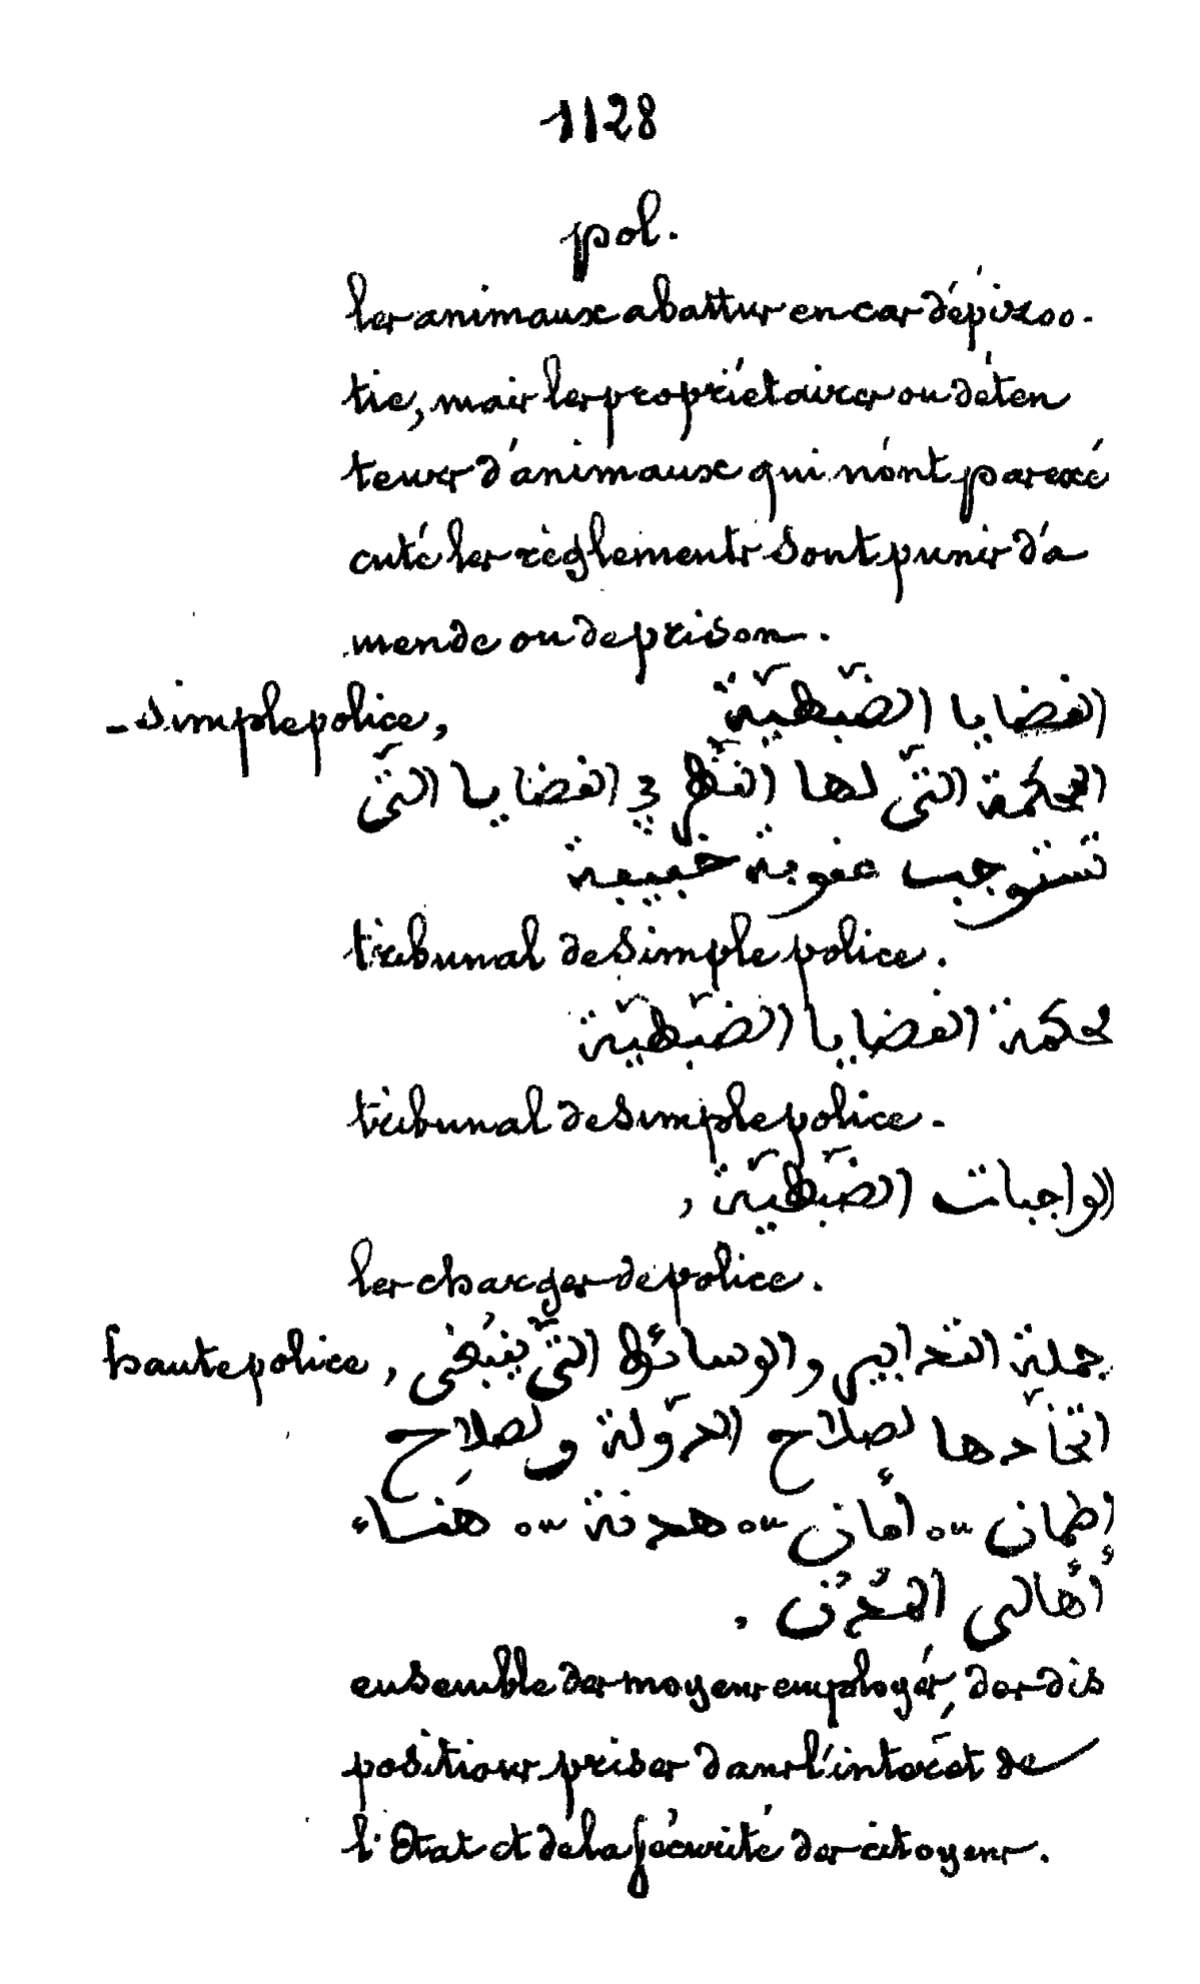 1128
pol.
les animaux abattus en cas d'épizoo-
tie, mais les propriétaires ou déten
teurs d'animaux qui n'ont pas exé
cuté les règlements sont punis d'a
mende ou de prison.
- simple police, الفضايا الضّبطيّة
المحكمة التّي لها النّظر في الفضايا التّي
تستوجب عفوبة خفيفة
tribunal de simple police.
محكمة الفضايا الضّبطيّة
tribunal de simple police.
الواجبات الضّبطيّة,
les charges de police.
haute police, جملة التدابير والوسائط التّي ينبغي
اتّخاذها لصلاح الدّولة ولصلاح
إطمان ٥٠ أمان ٥٠ هدنة ٥٠ هناء
أهالي المدن.
ensemble des moyens employés, des dis
positions prises dans l'intérêt de
l'Etat et de la sécurité des citoyens.